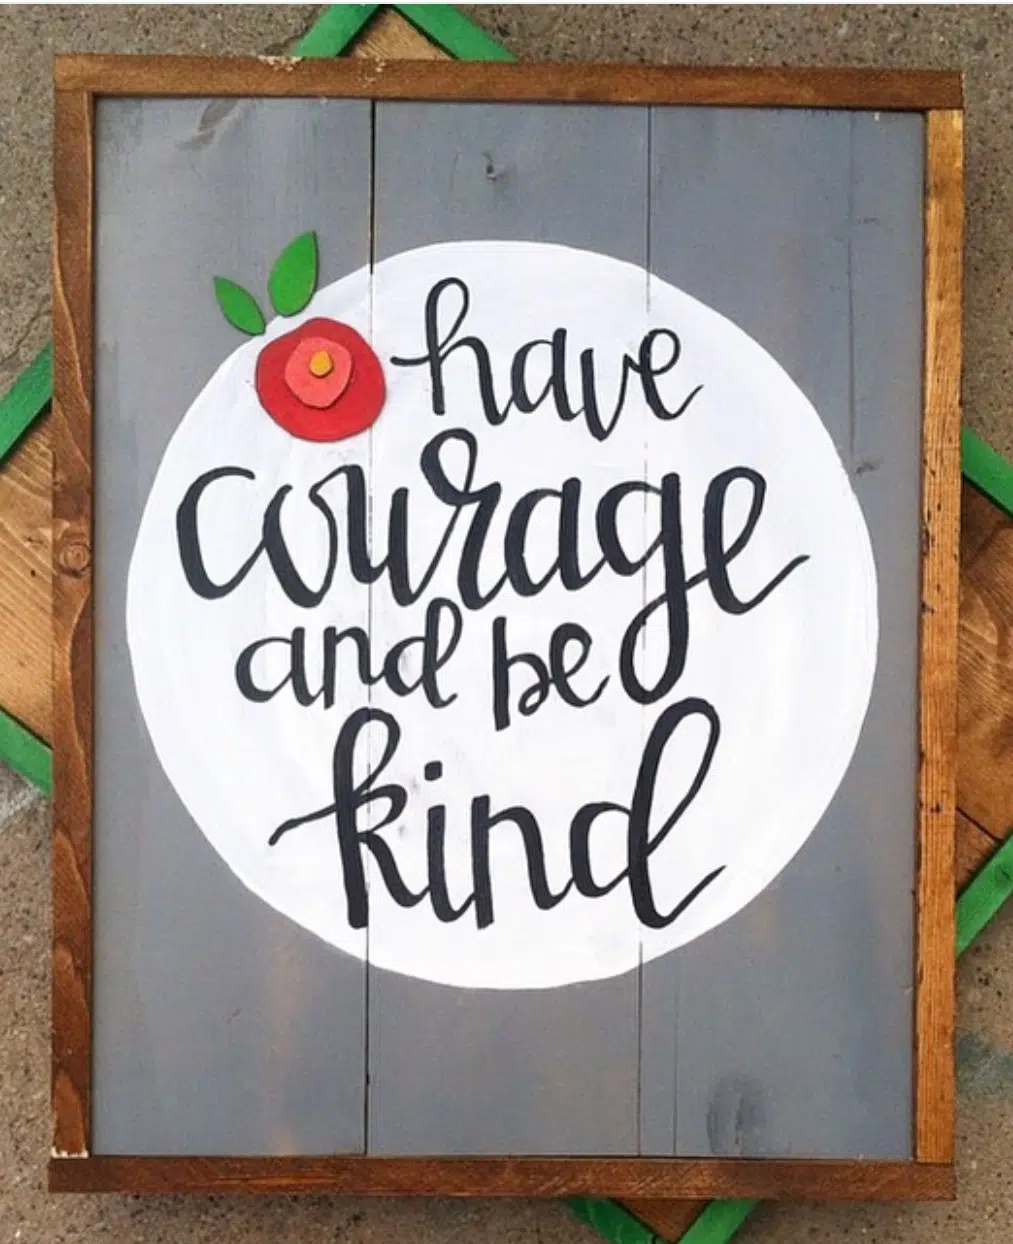 have
courage
and be
kind